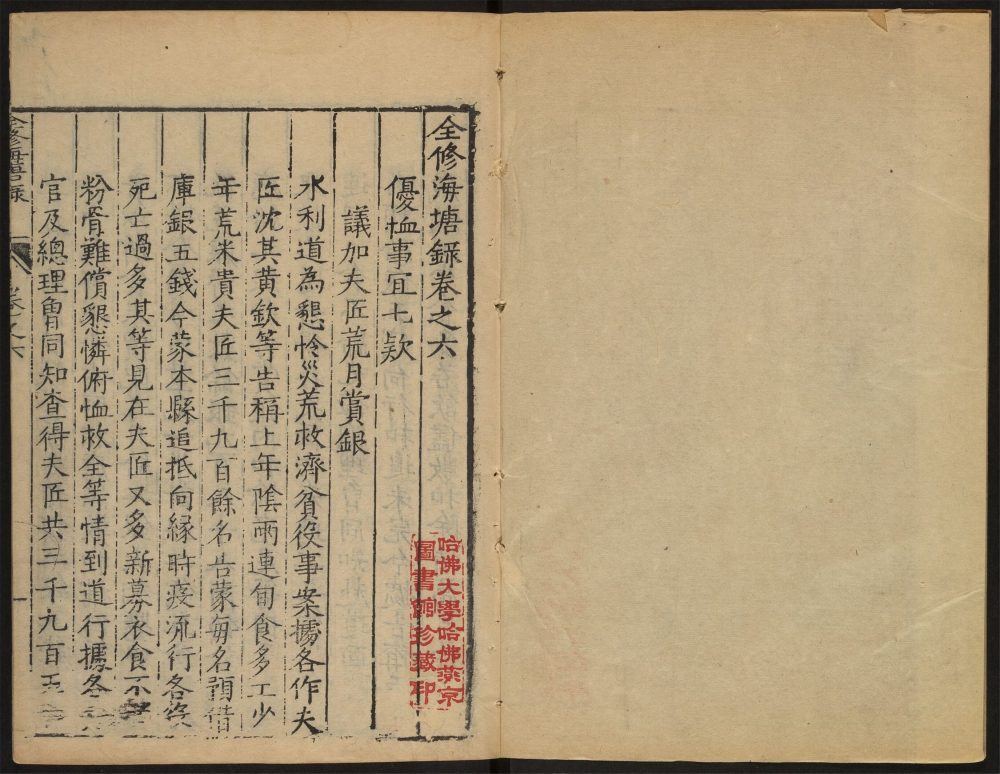 全修海塘錄卷之六
優恤事宜七欵
議加夫匠荒月賞銀
水利道為懇怜災荒救濟貧役事案據各作夫
匠沈其黄欽等告稱上年陰雨連旬食多工少
年荒米貴夫匠三千九百餘名告蒙每名預借
庫銀五錢今蒙本縣追抵向緣時疫流行各
死亡過多其等見在夫匠又多新募衣食不
粉骨難償懇憐俯恤救全等情到道行據各
官及總理曾同知查得夫匠共三千九百五
全修海塘錄
卷之六
一
哈佛大學哈佛燕京
圖書館珍藏印